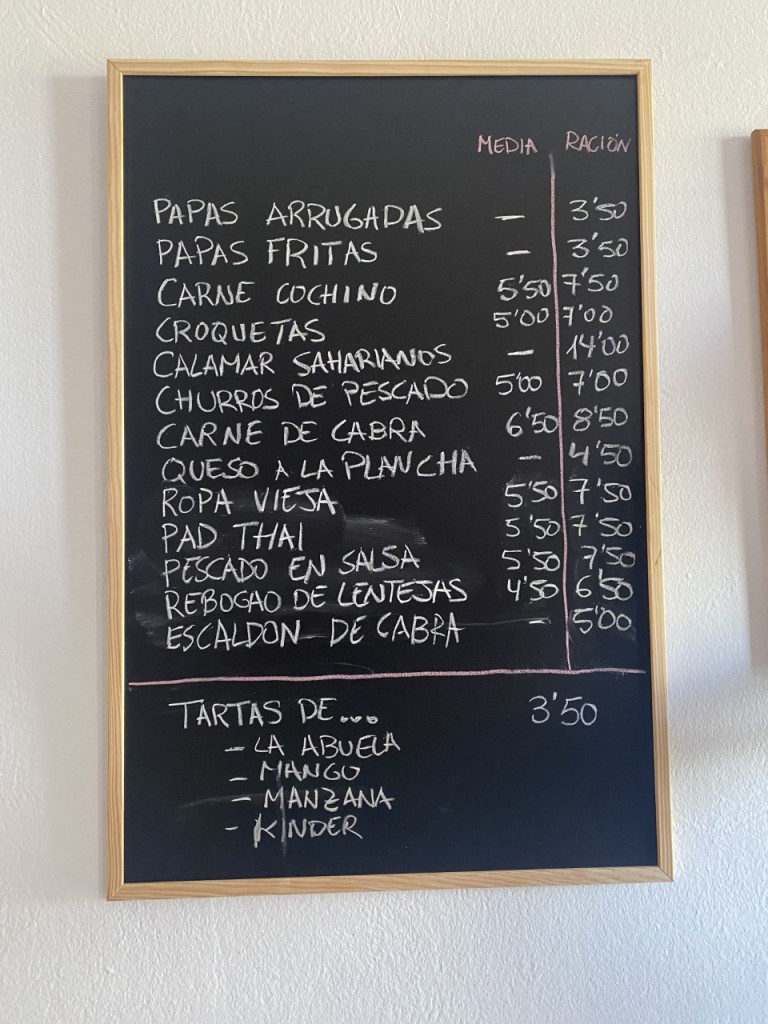 MEDIA RACIÓN
PAPAS ARRUGADAS — 3'50
PAPAS FRITAS — 3'50
CARNE COCHINO 5'50 7'50
CROQUETAS 5'00 7'00
CALAMAR SAHARIANOS — 14'00
CHURROS DE PESCADO 5'00 7'00
CARNE DE CABRA 6'50 8'50
QUESO A LA PLANCHA — 4'50
ROPA VIEJA 5'50 7'50
PAD THAI 5'50 7'50
PESCADO EN SALSA 5'50 7'50
REBOGAO DE LENTEJAS 4'50 6'50
ESCALDON DE CABRA — 5'00
TARTAS DE... 3'50
— LA ABUELA
— MANGO
— MANZANA
- KINDER